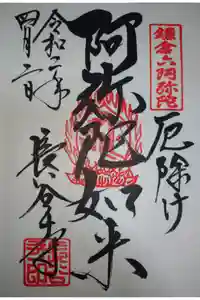 鎌倉六阿弥陀
厄除け
阿弥陀如来
令和二年
四月二日
長谷寺